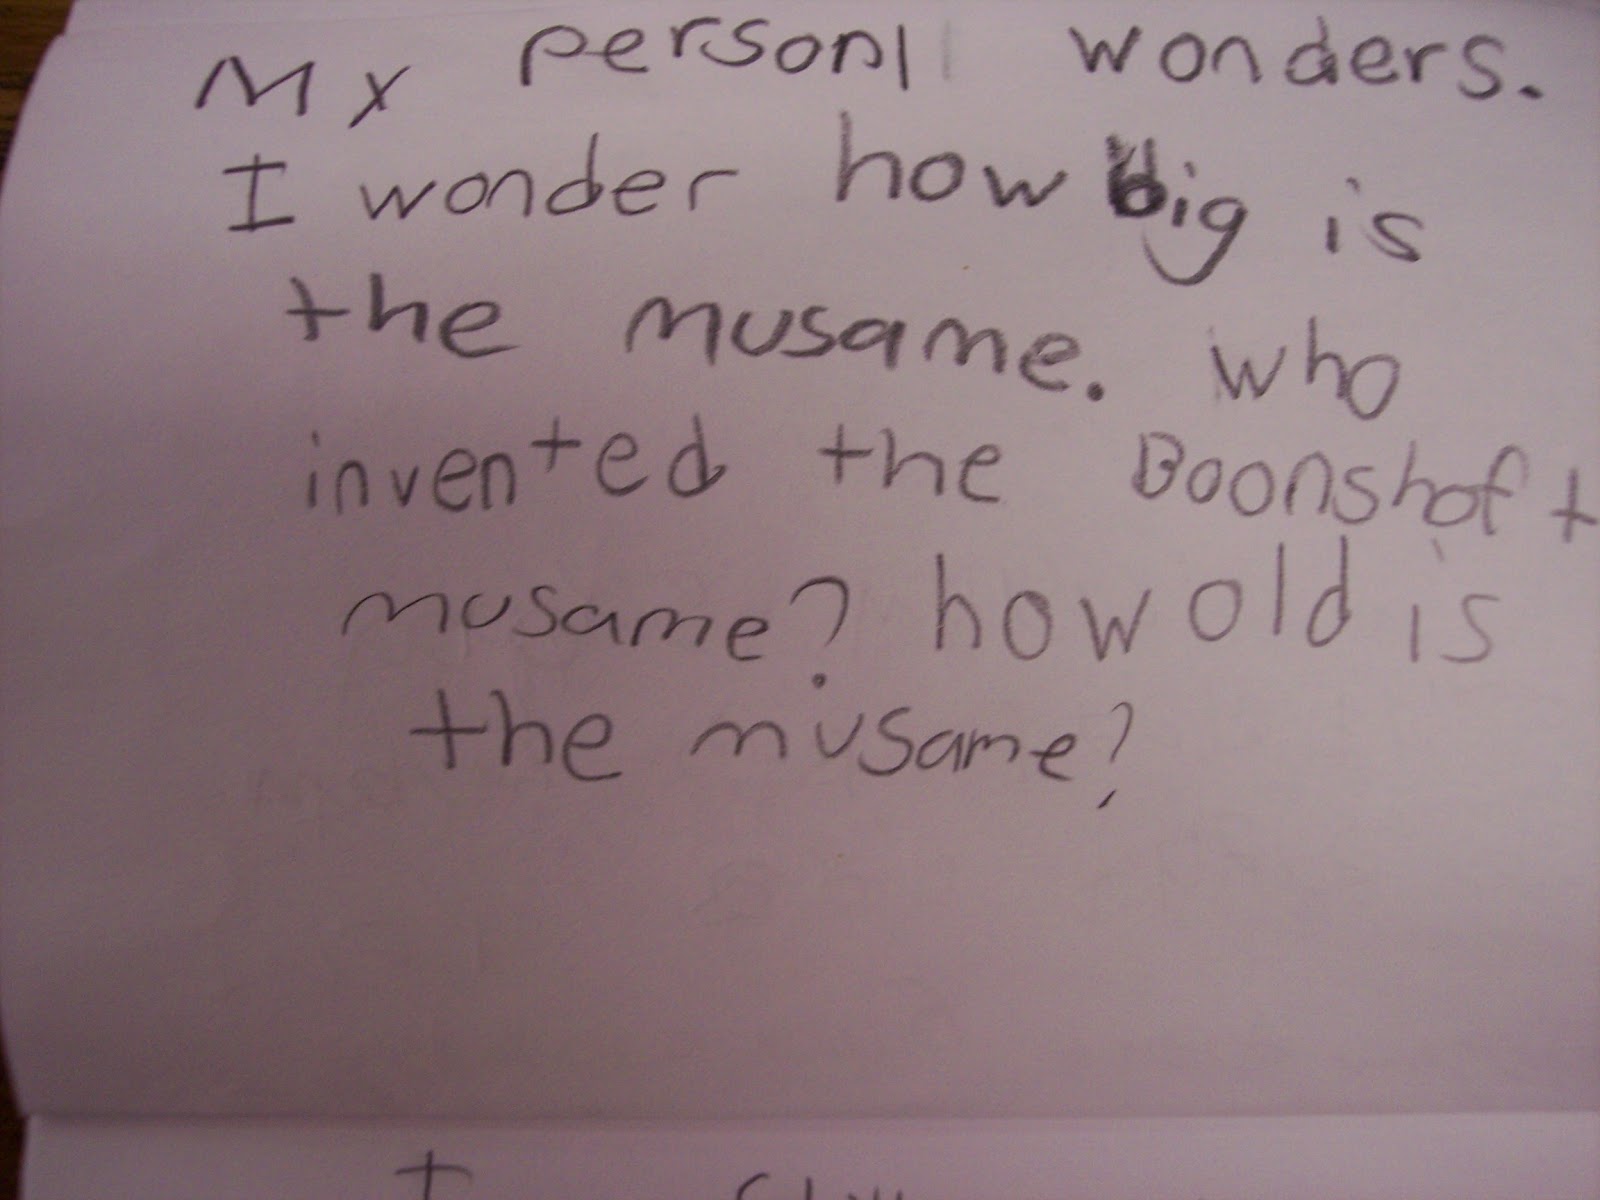 My personl wonders.
I wonder how big is
the musame. who
invented the Boonshoft
musame? how old is
the musame?
I